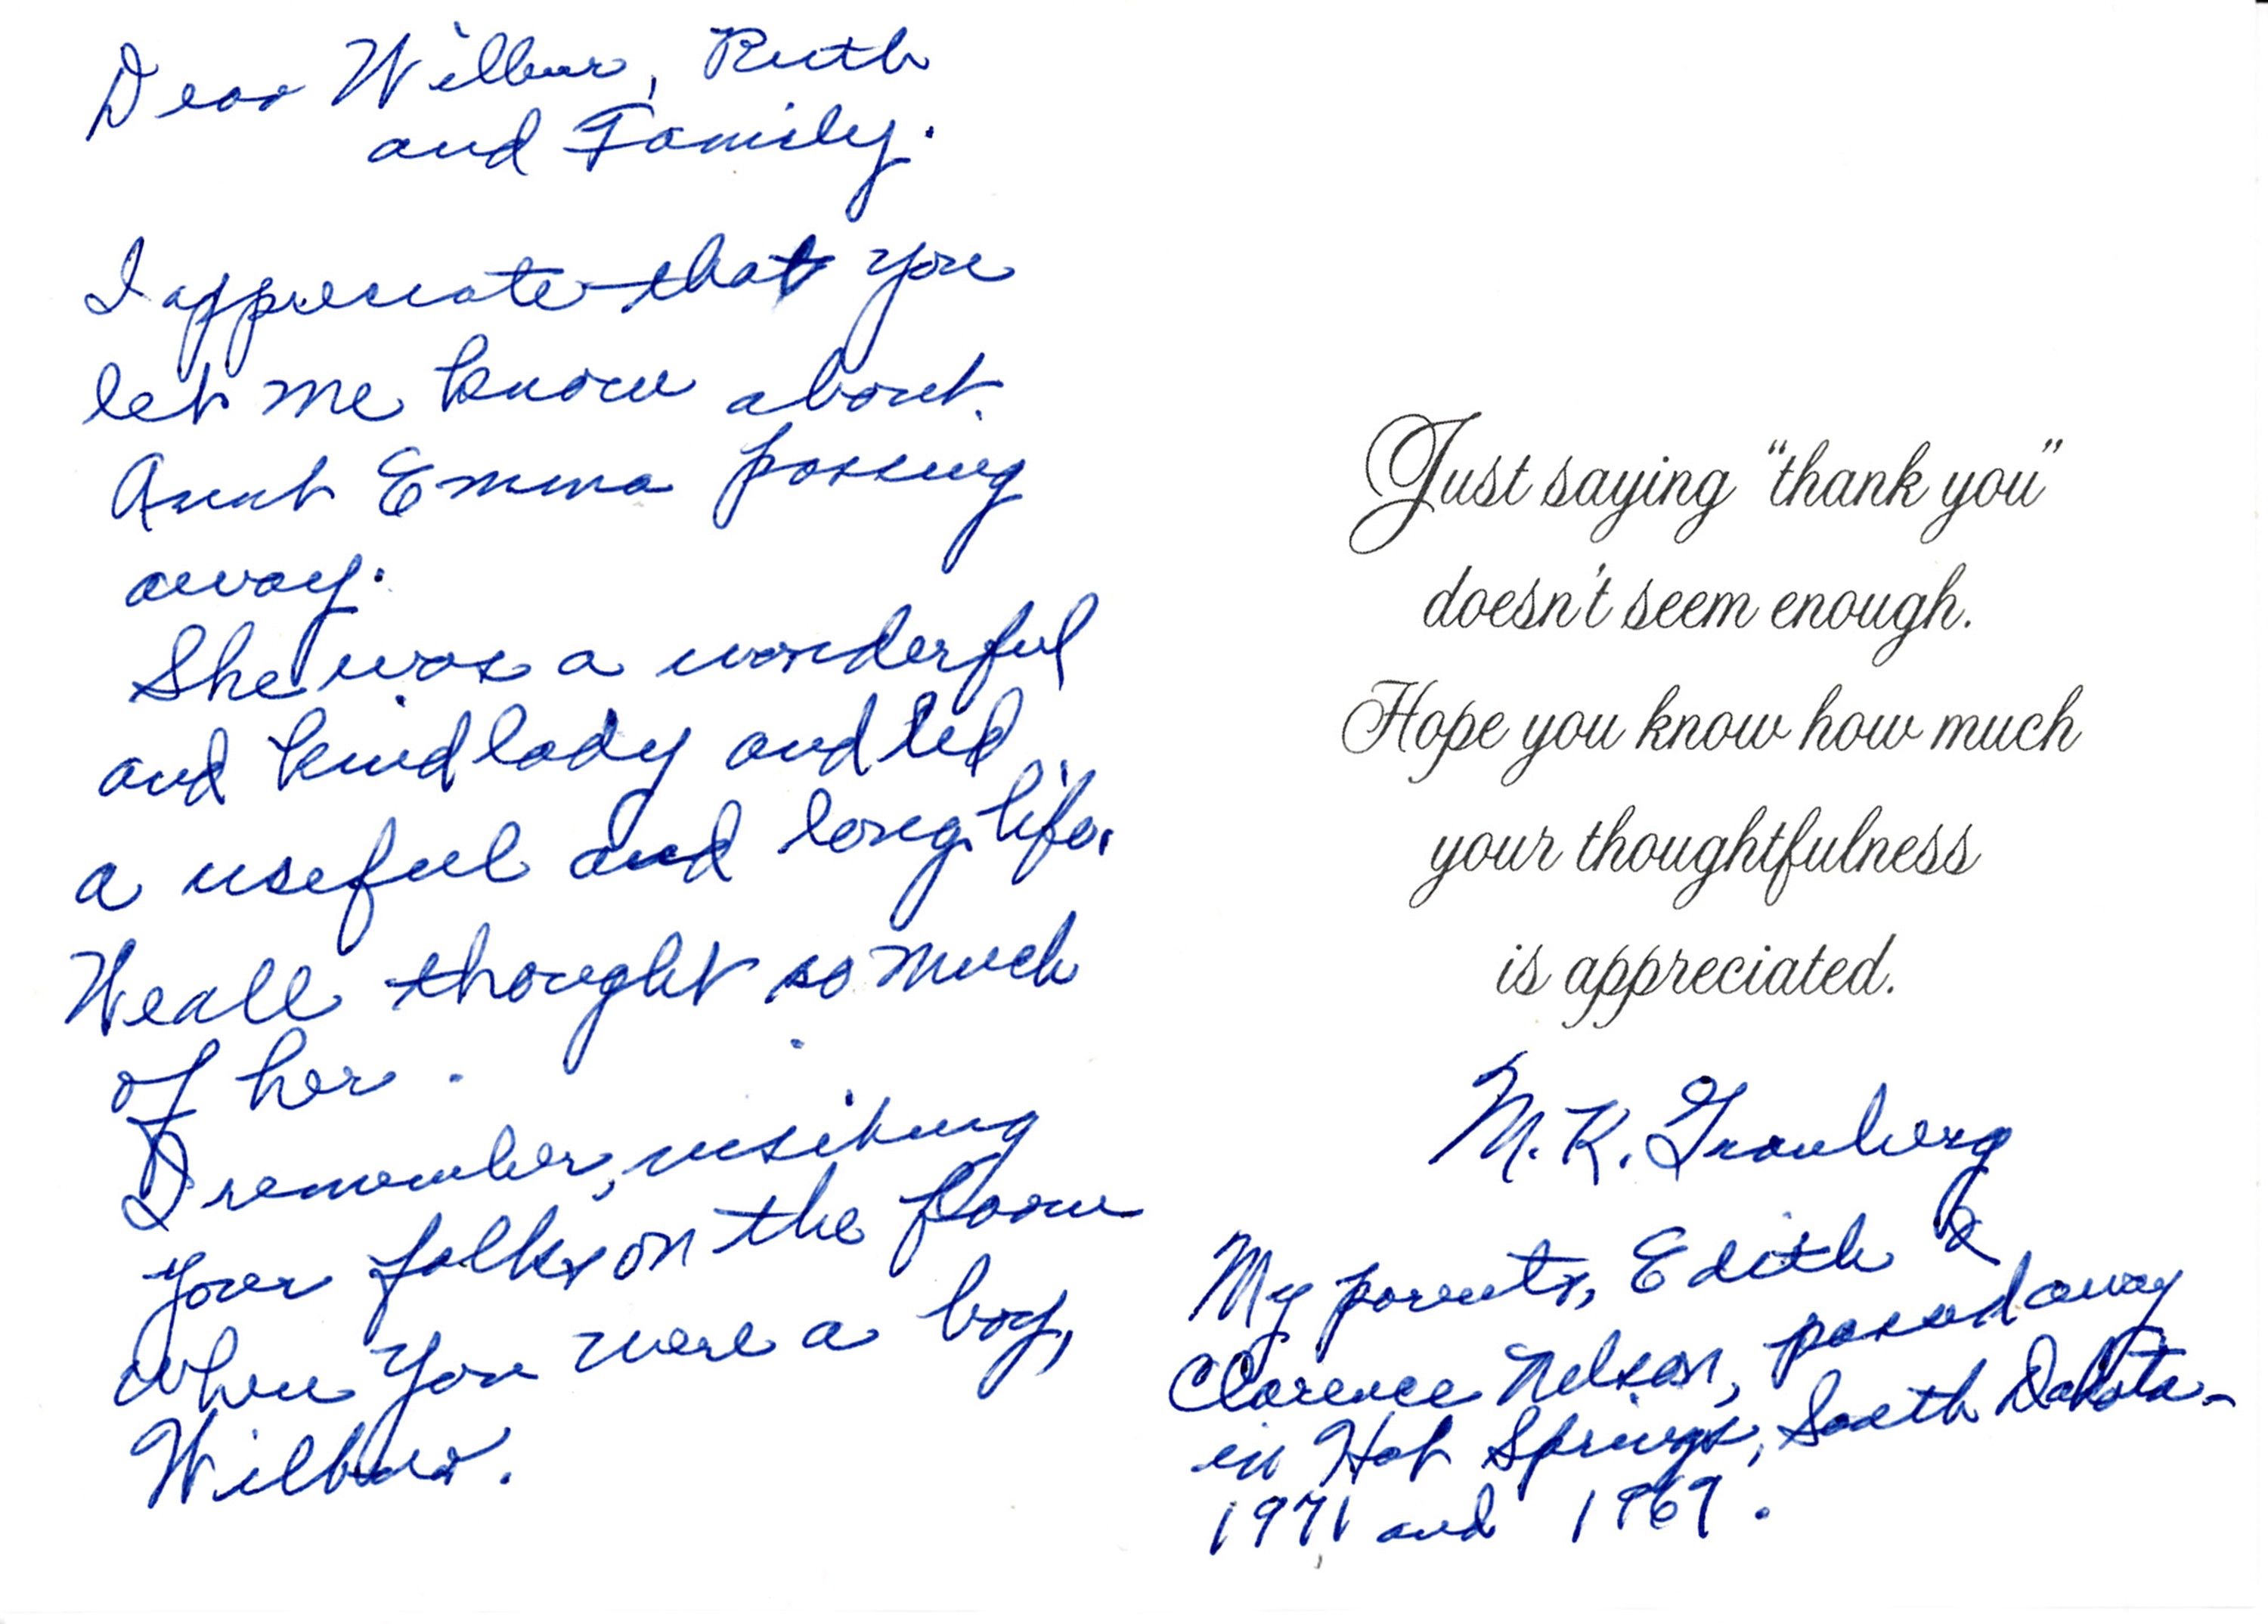 Dear Wilbur, Ruth
and Family.
I appreciate that you
let me know about
Aunt Emma passing
away.
She was a wonderful
and kind lady and led
a useful and long life.
We all thought so much
of her.
I remember, visiting
your folks on the farm
when you were a boy,
Wilbur.
Just saying "thank you"
doesn't seem enough.
Hope you know how much
your thoughtfulness
is appreciated.
M. K. Granberg
My parents, Edith &
Clarence Nelson, passed away
in Hot Springs, South Dakota -
1971 and 1969.